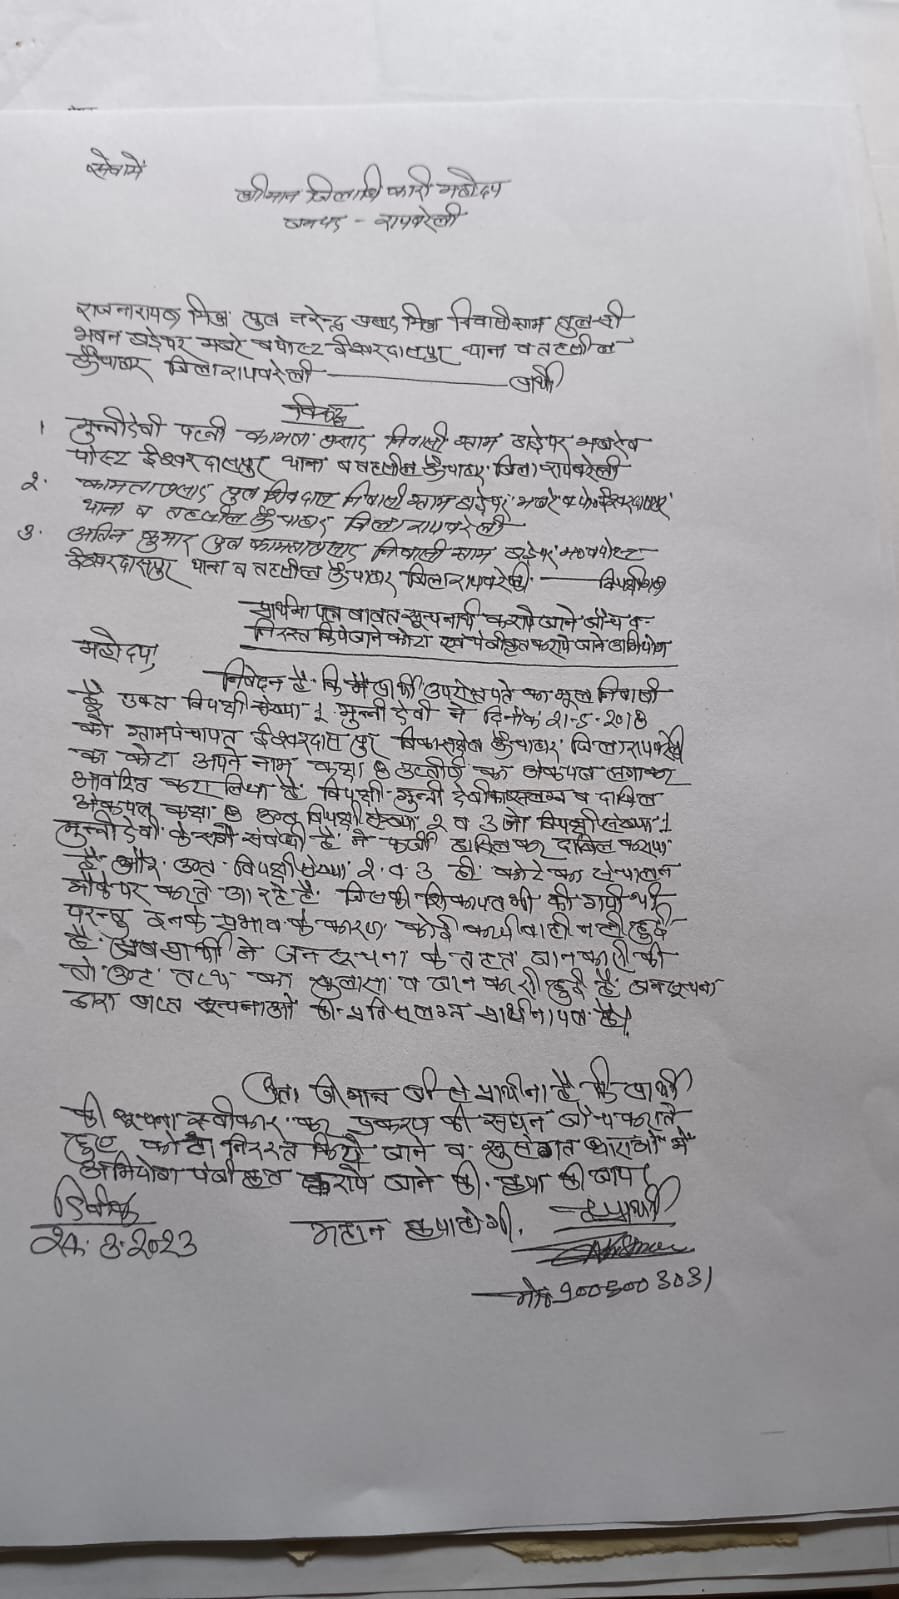 सेवामें
श्रीमान जिलाधिकारी महोदय
जनपद - रायबरेली
राजनारायण मिश्र पुत्र नरेन्द्र प्रसाद मिश्र निवासी ग्राम तुलसी
भवन बड़ेपर मजरे व पोस्ट ईश्वरदासपुर थाना व तहसील
ऊँचाहार जिला रायबरेली ——— प्रार्थी
विरुद्ध
1 मुन्नीदेवी पत्नी कामता प्रसाद निवासी ग्राम बड़ेपर मजरे व
पोस्ट ईश्वरदासपुर थाना व तहसील ऊँचाहार जिला रायबरेली
२. कामता प्रसाद पुत्र शिवदास निवासी ग्राम बड़ेपर मजरे व पो० ईश्वरदासपुर
थाना व तहसील ऊँचाहार जिला रायबरेली
३. कुमार पुत्र कामताप्रसाद निवासी ग्राम बड़ेपर म० व पोस्ट
ईश्वरदासपुर थाना व तहसील ऊँचाहार जिला रायबरेली ——— विपक्षीगण
प्रार्थना पत्र बावत सूचनार्थ कराये जाने जाँच व
निरस्त किये जाने कोटा एवं पंजीकृत कराये जाने अभियोग
महोदय,
निवेदन है कि मैं प्रार्थी उपरोक्त पते का मूल निवासी
है उक्त विपक्षी संख्या 1 मुन्नी देवी ने दिनाँक 21-5-2018
को ग्रामपंचायत ईश्वरदासपुर विकासक्षेत्र ऊँचाहार जिला रायबरेली
का कोटा अपने नाम कक्षा 8 उत्तीर्ण का अंकपत्र लगाकर
आवंटित करा लिया है विपक्षी मुन्नी देवी का संलग्न व दाखिल
अंकपत्र कक्षा 8 उक्त विपक्षी संख्या 2 व 3 जो विपक्षी संख्या 1
मुन्नीदेवी के सगे संबंधी है ने फर्जी हासिल कर दाखिल कराया
है और उक्त विपक्षी संख्या 2 व 3 ही कोटे का संचालन
मौके पर करते आ रहे है जिसकी शिकायत भी की गयी थी
परन्तु इनके प्रभाव के कारण कोई कार्यवाही नही हुई
है अब प्रार्थी ने जन सूचना के तहत जानकारी की
तो उक्त तथ्य का खुलासा व जानकारी हुई है जनसूचना
द्वारा प्राप्त सूचनाओं की प्रति संलग्न प्रार्थनापत्र है।
अतः श्रीमान जी से प्रार्थना है कि प्रार्थी
की सूचना स्वीकार कर प्रकरण की सघन जाँच कराते
हुए कोटा निरस्त किये जाने व सुसंगत धाराओं में
अभियोग पंजीकृत कराये जाने की कृपा की जाय।
दिनाँक
24.3.2023
महान कृपा होगी.
प्रार्थी
मो०